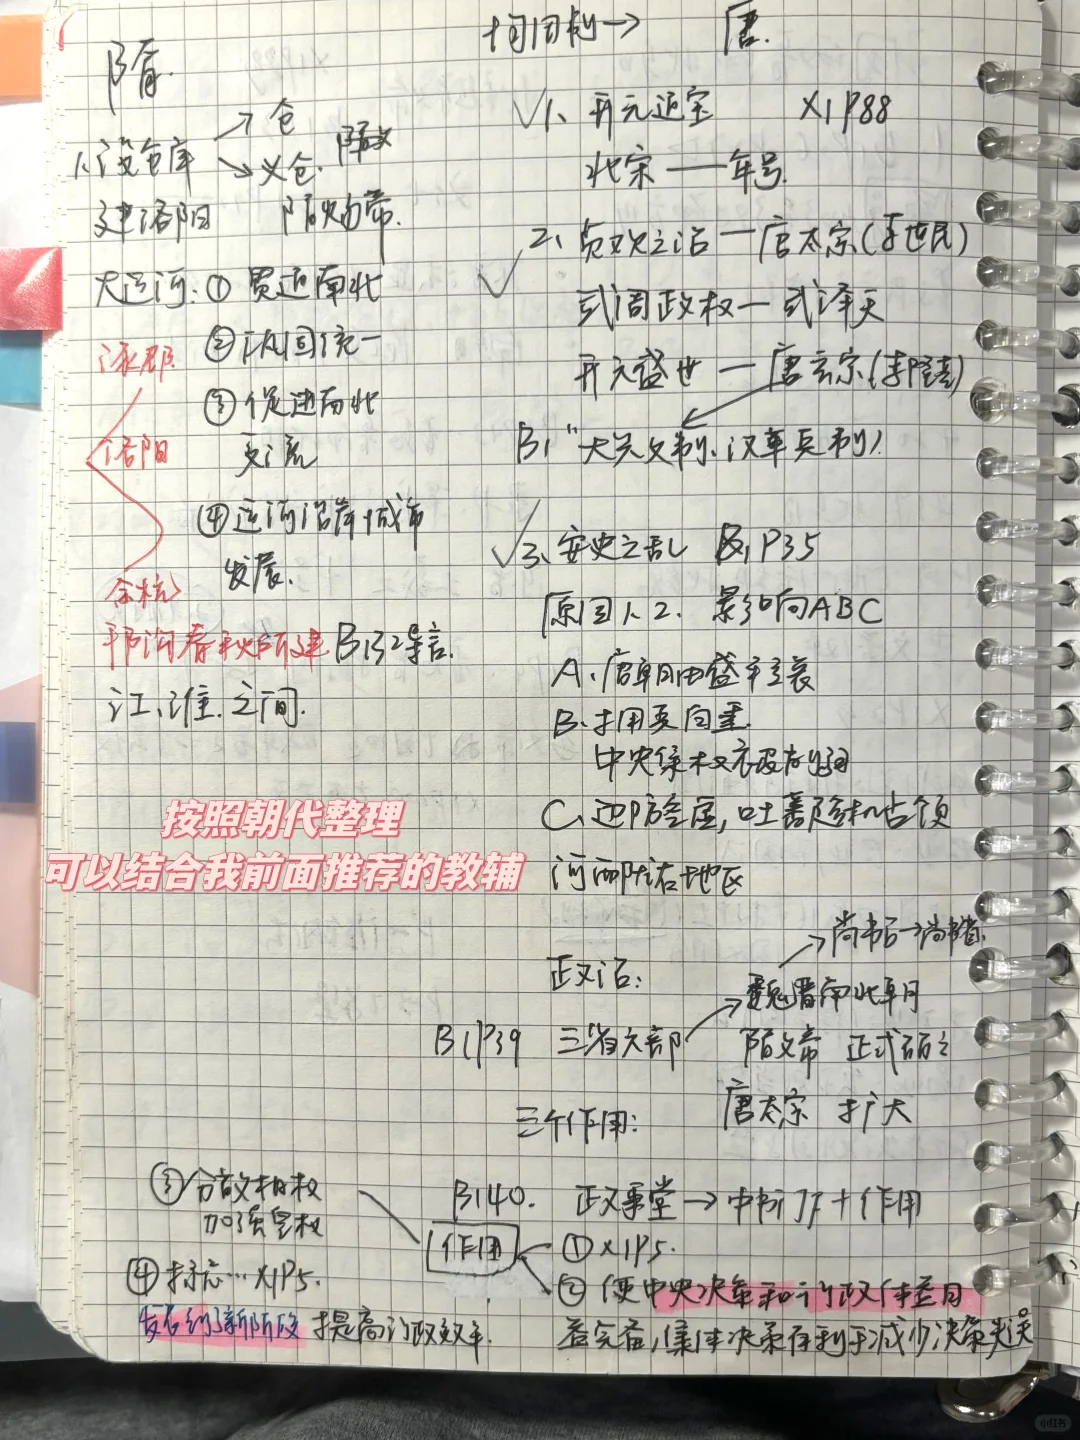 隋.
1、设仓库 → 仓
→ 义仓. 隋文
建洛阳 隋炀帝.
大运河: ① 贯通南北
② 巩固统一
③ 促进南北
交流
④ 运河沿岸城市
发展.
涿郡
洛阳
余杭
邗沟春秋所建 B132导言.
江、淮.之间.
按照朝代整理
可以结合我前面推荐的教辅
→ 唐.
√1、开元通宝 X1P88
北宋——年号.
√2、贞观之治—唐太宗(李世民)
武周政权—武泽天
开元盛世—唐玄宗(李隆基)
√3、安史之乱 B1P35
原因1、2. 影响ABC
A、唐朝由盛转衰
B、
中央集权
C、边防空虚,吐蕃趁机占领
河西陇右地区
政治:
→尚书台→尚书省.
B1P39 三省六部 → 魏晋南北朝
隋文帝 正式确立
唐太宗 扩大
三个作用:
B140. 政事堂→中书门下+作用
作用
① X1P5.
② 使中央决策和行政体系日
益完备,集体决策有利于减少决策失误
③ 分散相权
加强皇权
④ 标志…X1P5.
发展到了新阶段 提高行政效率.